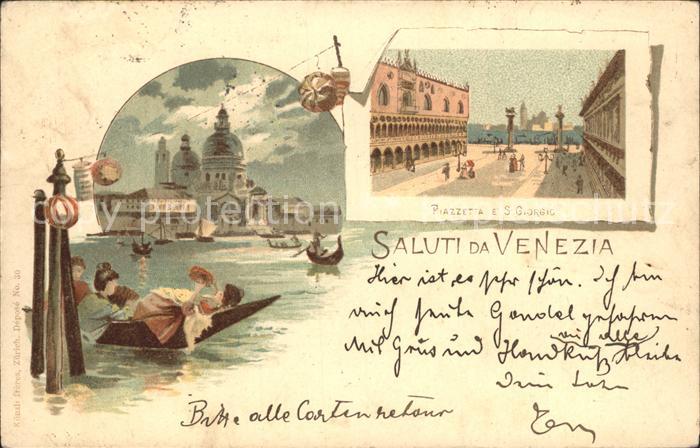 PIAZZETTA E S. GIORGIO
SALUTI DA VENEZIA
Hier ist es sehr schön. Ich bin
auch heute Gondel gefahren
alle
Mit Gruss und Handkuß bleibe
Dein Sohn
Bitte alle Carten retour
Künzli Frères, Zürich, Déposé No. 30